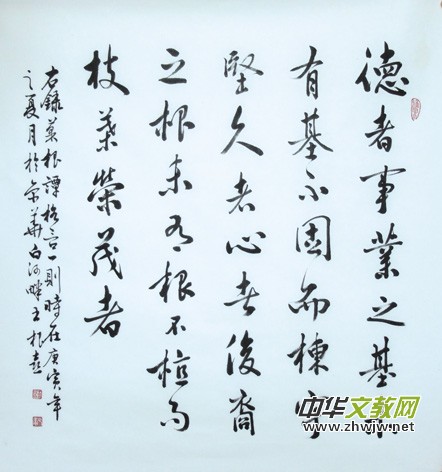 德者事業之基未
有基不固而棟宇
堅久者心者後裔
之根未有根不植而
枝葉榮茂者
右錄菜根譚格言一則時在庚寅年
之夏月於京華白河畔王根
中华文教网
www.zhwjw.net